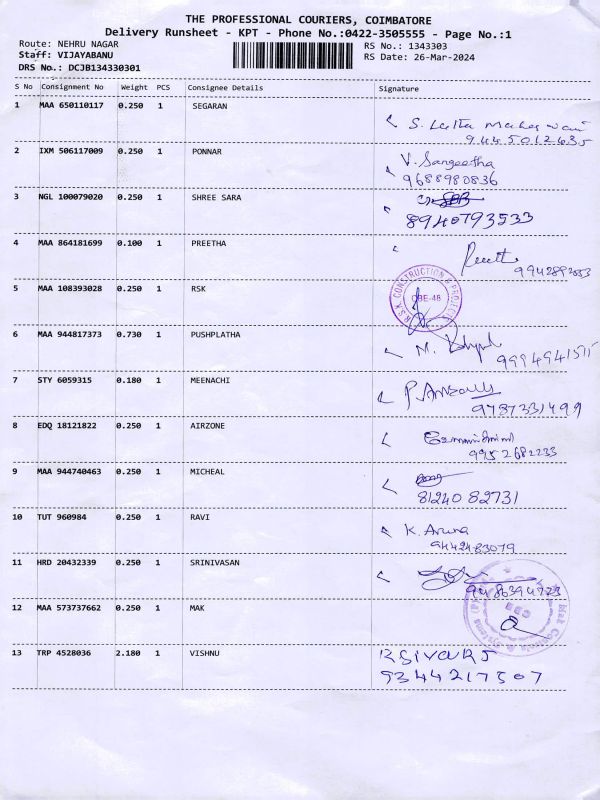 THE PROFESSIONAL COURIERS, COIMBATORE
Delivery Runsheet - KPT - Phone No.:0422-3505555 - Page No.:1
Route: NEHRU NAGAR RS No.: 1343303
Staff: VIJAYABANU RS Date: 26-Mar-2024
DRS No.: DCJB134330301
S No Consignment No Weight PCS Consignee Details Signature
1 MAA 650110117 0.250 1 SEGARAN
S. Latha
9445012635
2 IXM 506117009 0.250 1 PONNAR V. Sangeetha
9688980836
3 NGL 100079020 0.250 1 SHREE SARA
8940793533
4 MAA 864181699 0.100 1 PREETHA
Preetha
5 MAA 108393028 0.250 1 RSK R.S.K. CONSTRUCTION & PROJECT
CBE-48
6 MAA 944817373 0.730 1 PUSHPLATHA M.
7 STY 6059315 0.180 1 MEENACHI P.
9787331499
8 EDQ 18121822 0.250 1 AIRZONE
9952682233
9 MAA 944740463 0.250 1 MICHEAL
8124082731
10 TUT 960984 0.250 1 RAVI K. Aruna
9442483079
11 HRD 20432339 0.250 1 SRINIVASAN
9486394723
12 MAA 573737662 0.250 1 MAK CBE
13 TRP 4528036 2.180 1 VISHNU
9344217507